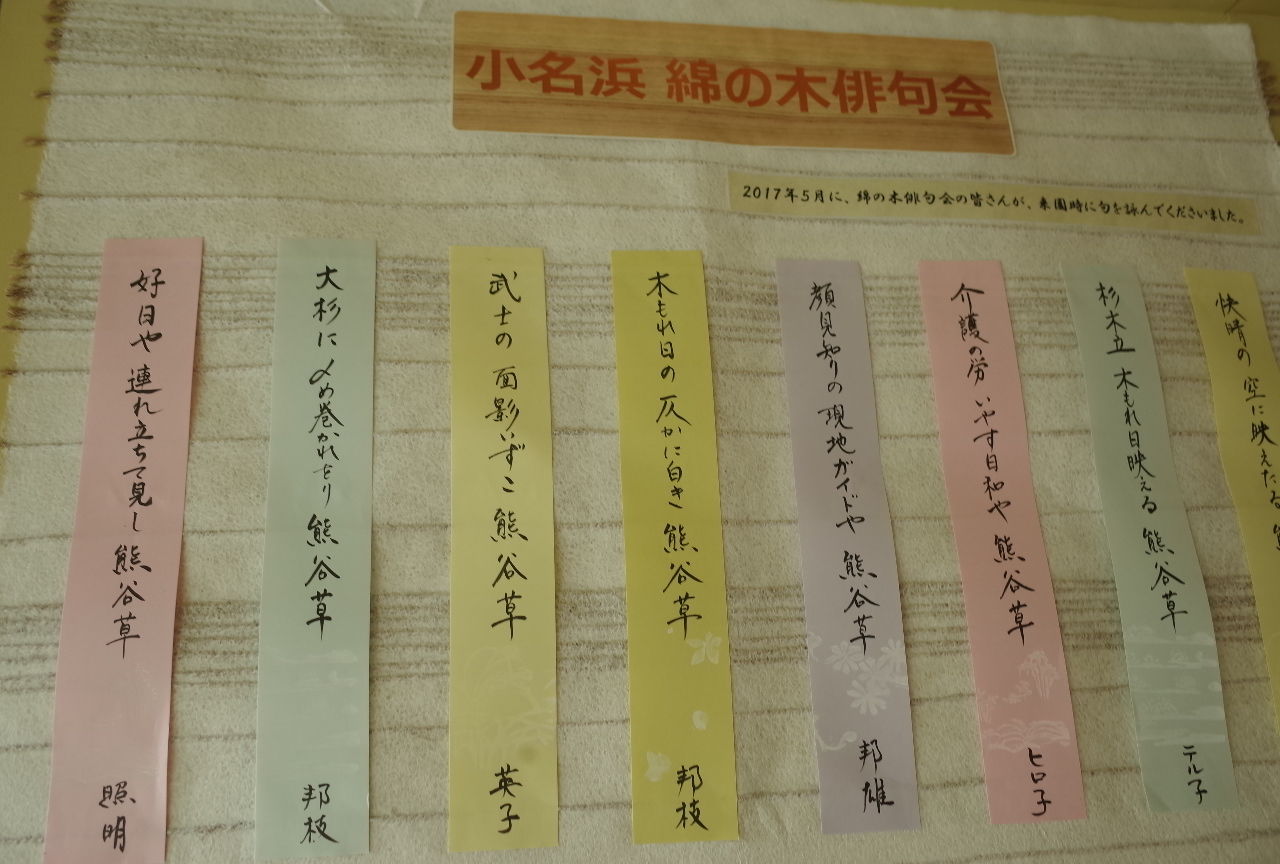 小名浜 綿の木俳句会
2017年5月に、綿の木俳句会の皆さんが、来園時に句を詠んでくださいました。
快晴の 空に映えたる 熊
杉木立 木もれ日映える 熊谷草
テル子
介護の労 いやす日和や 熊谷草
ヒロ子
顔見知りの 現地ガイドや 熊谷草
邦雄
木もれ日の 仄かに白き 熊谷草
邦枝
武士の 面影いずこ 熊谷草
英子
大杉に 〆め巻かれをり 熊谷草
邦枝
好日や 連れ立ちて見し 熊谷草
照明